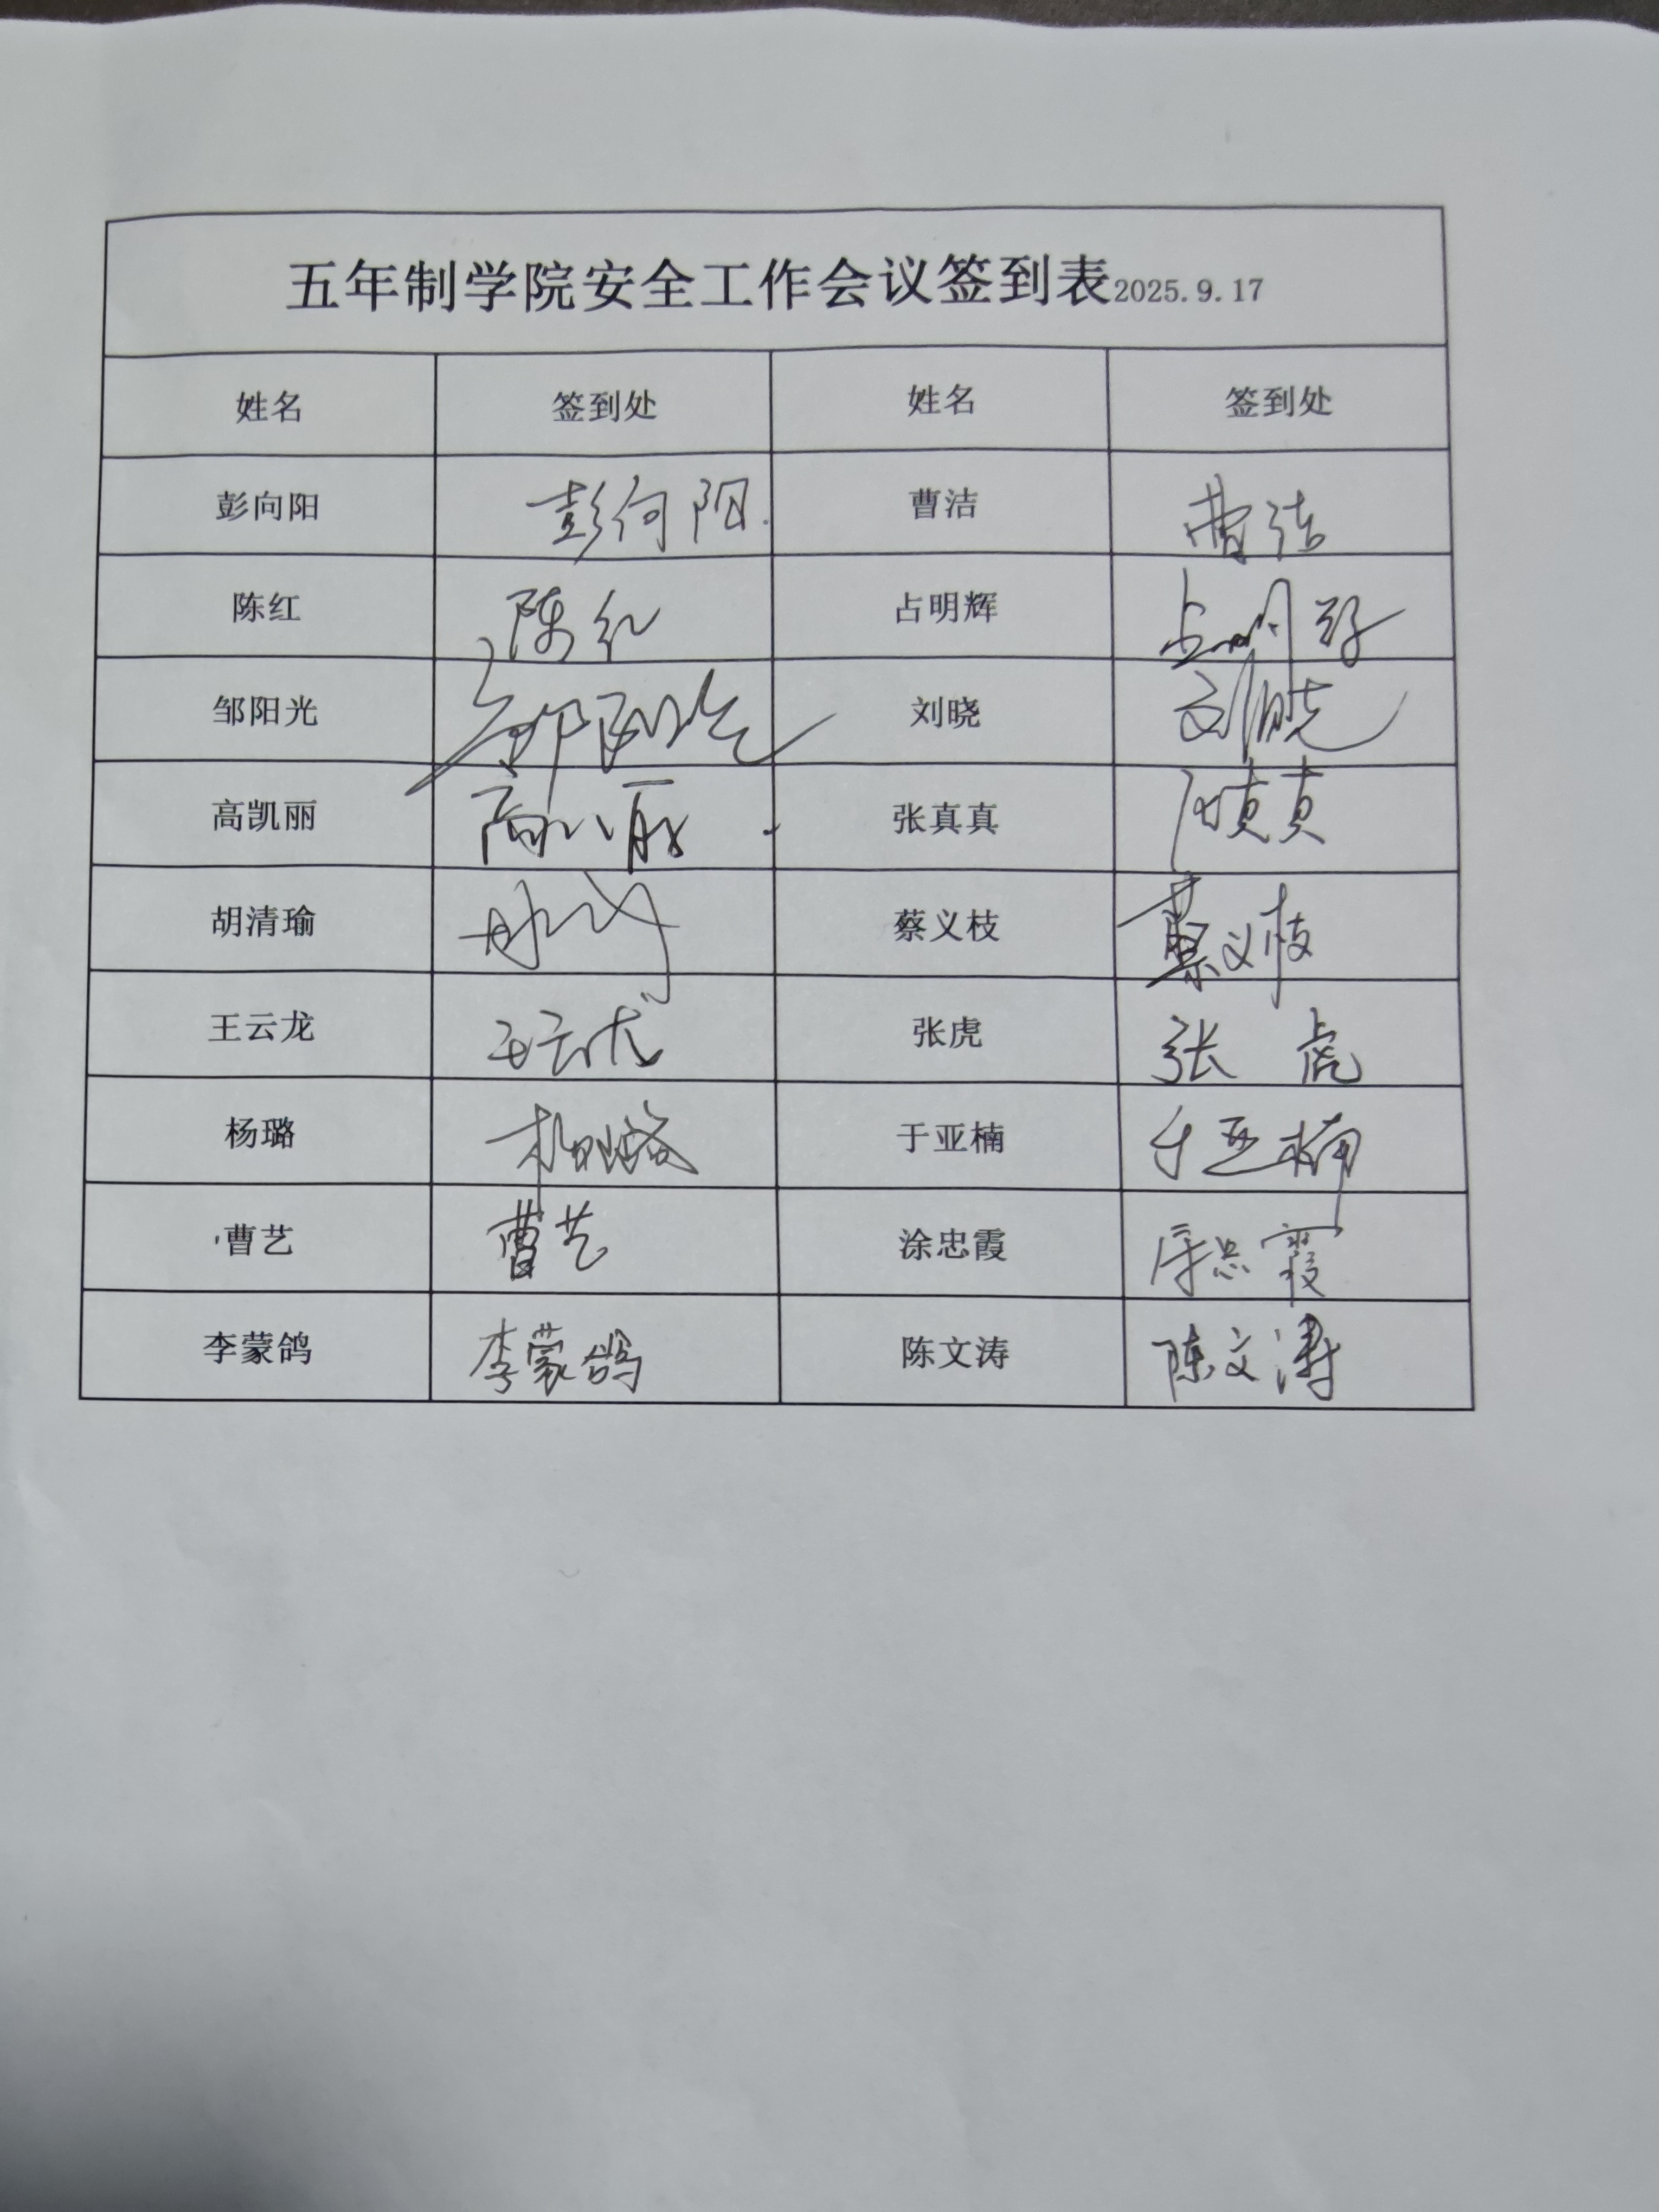 五年制学院安全工作会议签到表2025.9.17
姓名 签到处 姓名 签到处
彭向阳 彭向阳 曹洁 曹洁
陈红 陈红 占明辉 占明辉
邹阳光 邹阳光 刘晓 刘晓
高凯丽 高凯丽 张真真 张真真
胡清瑜 蔡义枝 蔡义枝
王云龙 王云龙 张虎 张虎
杨璐 杨璐 于亚楠 于亚楠
曹艺 曹艺 涂忠霞 涂忠霞
李蒙鸽 李蒙鸽 陈文涛 陈文涛